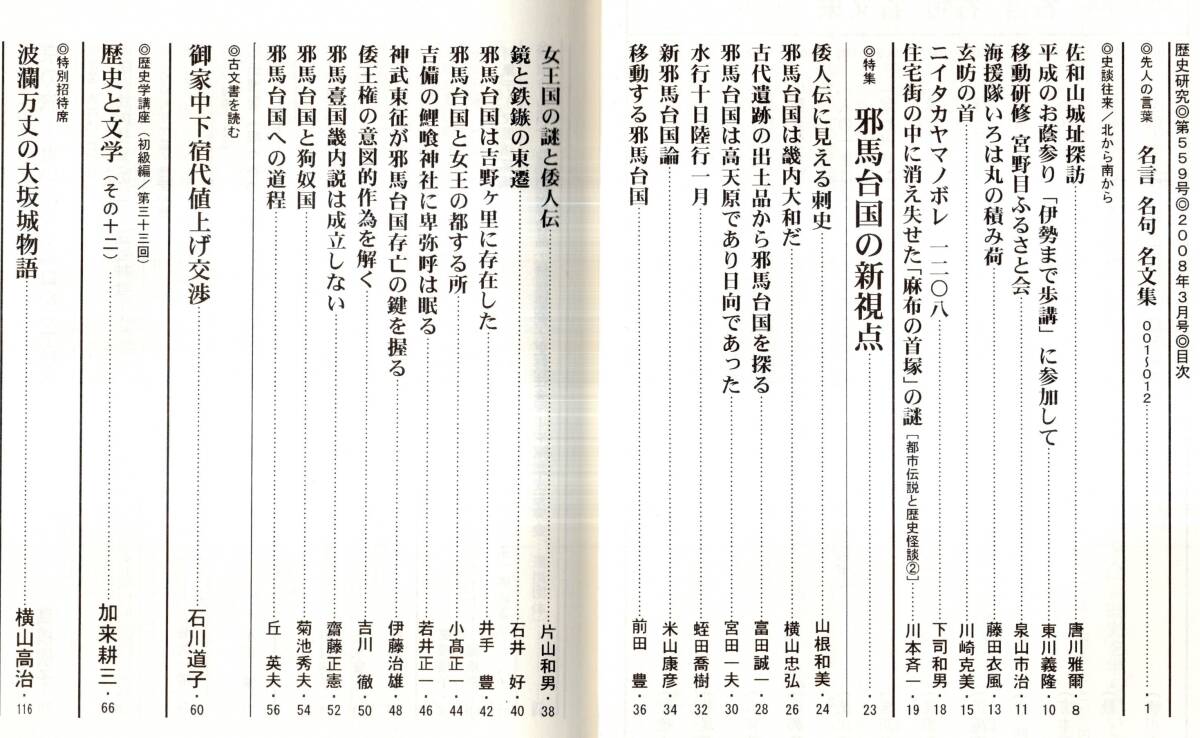 歴史研究◎第559号◎2008年3月号◎目次
◎先人の言葉 名言 名句 名文集 001〜012 ・1
◎史談往来／北から南から
佐和山城址探訪 唐川雅爾・8
平成のお蔭参り「伊勢まで歩講」に参加して 東川義隆・10
移動研修 宮野目ふるさと会 泉山市治・11
海援隊いろは丸の積み荷 藤田衣風・13
玄昉の首 川崎克美・15
ニイタカヤマノボレ 一二〇八 下司和男・18
住宅街の中に消え失せた「麻布の首塚」の謎［都市伝説と歴史怪談②］ 川本斉一・19
◎特集 邪馬台国の新視点 23
倭人伝に見える刺史 山根和美・24
邪馬台国は畿内大和だ 横山忠弘・26
古代遺跡の出土品から邪馬台国を探る 富田誠一・28
邪馬台国は高天原であり日向であった 宮田一夫・30
水行十日陸行一月 蛭田喬樹・32
新邪馬台国論 米山康彦・34
移動する邪馬台国 前田 豊・36
女王国の謎と倭人伝 片山和男・38
鏡と鉄鏃の東遷 石井 好・40
邪馬台国は吉野ヶ里に存在した 井手 豊・42
邪馬台国と女王の都する所 小髙正一・44
吉備の鯉喰神社に卑弥呼は眠る 若井正一・46
神武東征が邪馬台国存亡の鍵を握る 伊藤治雄・48
倭王権の意図的作為を解く 吉川 徹・50
邪馬臺国畿内説は成立しない 齋藤正憲・52
邪馬台国と狗奴国 菊池秀夫・54
邪馬台国への道程 丘 英夫・56
◎古文書を読む
御家中下宿代値上げ交渉 石川道子・60
◎歴史学講座（初級編／第三十三回）
歴史と文学（その十二） 加来耕三・66
◎特別招待席
波瀾万丈の大坂城物語 横山高治・116